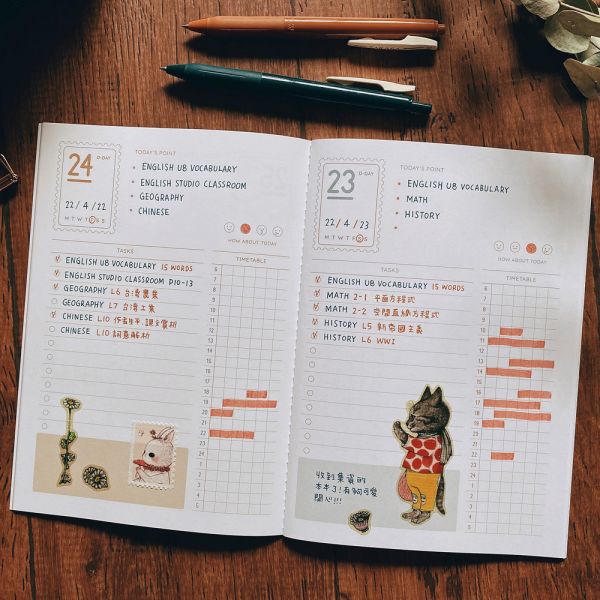 24 D-DAY
22 / 4 / 22
M T W T F S S
TODAY'S POINT
• ENGLISH U8 VOCABULARY
• ENGLISH STUDIO CLASSROOM
• GEOGRAPHY
• CHINESE
HOW ABOUT TODAY
TASKS
TIMETABLE
ENGLISH U8 VOCABULARY 15 WORDS
ENGLISH STUDIO CLASSROOM P10-13
GEOGRAPHY L6 台灣農業
GEOGRAPHY L7 台灣工業
CHINESE L10 作者生平、課文賞析
CHINESE L10 詞意解析
6
7
8
9
10
11
12
13
14
15
16
17
18
19
20
21
22
23
24
1
2
3
4
5
23 D-DAY
22 / 4 / 23
M T W T F S S
TODAY'S POINT
• ENGLISH U8 VOCABULARY
• MATH
• HISTORY
•
HOW ABOUT TODAY
TASKS
TIMETABLE
ENGLISH U8 VOCABULARY 15 WORDS
MATH 2-1 平面方程式
MATH 2-2 空間直線方程式
HISTORY L5 新帝國主義
HISTORY L6 WWI
6
7
8
9
10
11
12
13
14
15
16
17
18
19
20
21
22
23
24
1
2
3
4
5
收到集資的
本本了!有夠可愛
開心!!!